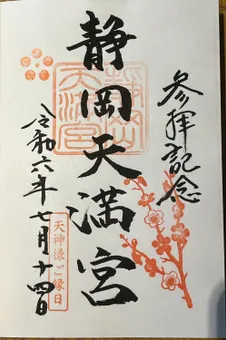 参拝記念
静岡天満宮
令和六年七月十四日
天神様ご縁日